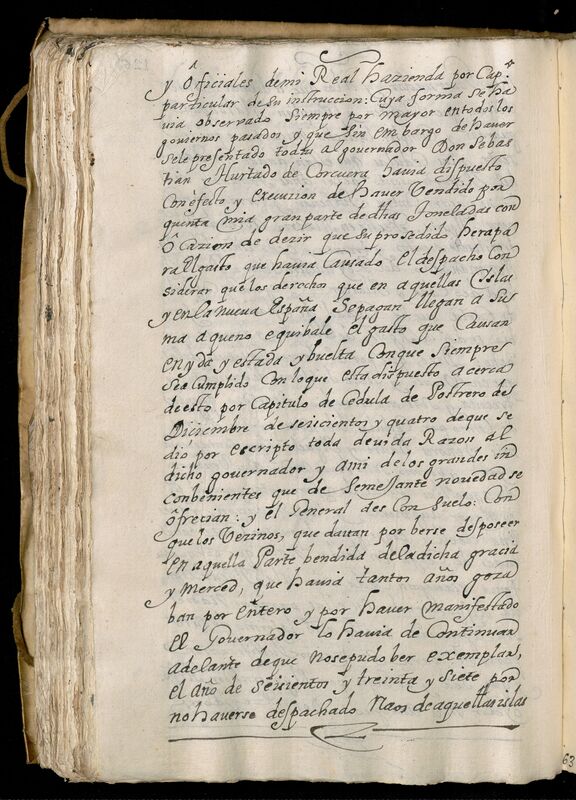 y Oficiales demi Real hazienda por Cap.º
particular de su instruccion: Cuya forma se ha
via observado siempre por mayor entodos los
goviernos pasados y que sin embargo de haver
sele presentado todtu al governador Don Sebas
tian Hurtado de Corcuera havia dispuesto
Con efecto y execuzion de haver Vendido por
quenta mia gran parte de dhas Toneladas con
Ocazion de dezir que su prosedido hera pa
ra El gasto que havia Causado El despacho Con
siderar que los derechos que en aquellas Islas
y en la nueva España Sepagan llegan a Su
ma aqueno equibale el gasto que Causan
en yda y estada y buelta Con que Siempre
Sea Cumplido Con loque esta dispuesto acerca
de esto por Capitulo de Cedula de Postrero de
Diciembre de seiscientos y quatro de que se
dio por escripto toda devida Razon al
dicho governador y ami de los grandes in
conbenientes que de Semejante novedad se
ofrecian: y el General des Con Suelo: Con
que los Vezinos, que dauan por berse desposeer
en aquella Parte bendida de la dicha gracia
y Merced, que havia tantos años goza
ban por entero y por haver manifestado
El Governador lo havia de Continuar
adelante deque nosepudo ber exemplar,
el año de seiscientos y treinta y siete por
no haverse despachado Naos de aquellas islas
63